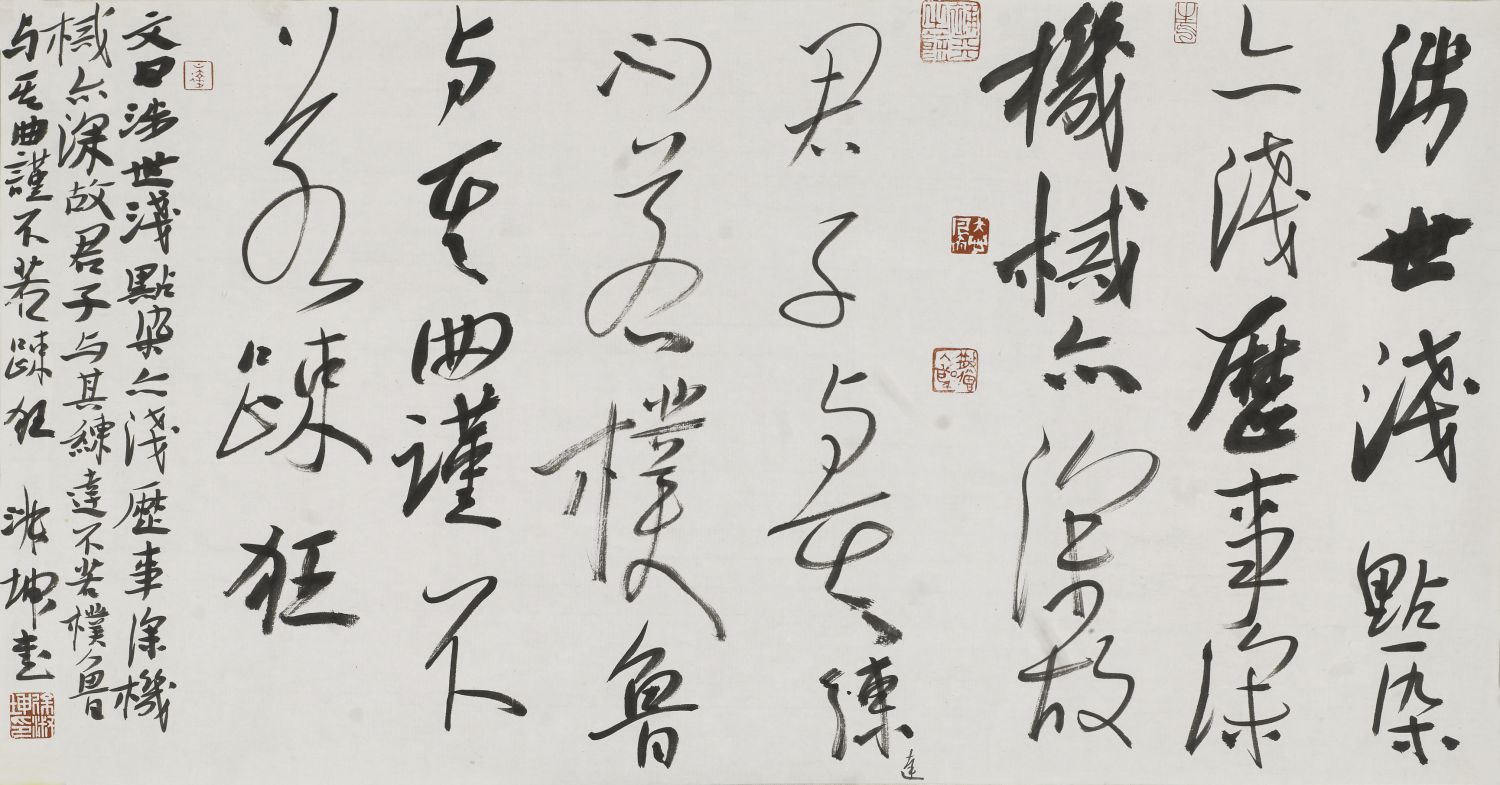 涉世淺點染
亦淺歷事深
機械亦深故
君子与其練達
不若樸魯
与其曲謹不
若踈狂
文曰涉世淺點染亦淺歷事深機
械亦深故君子与其練達不若樸魯
与其曲謹不若踈狂 淑坤書
徐淑坤印